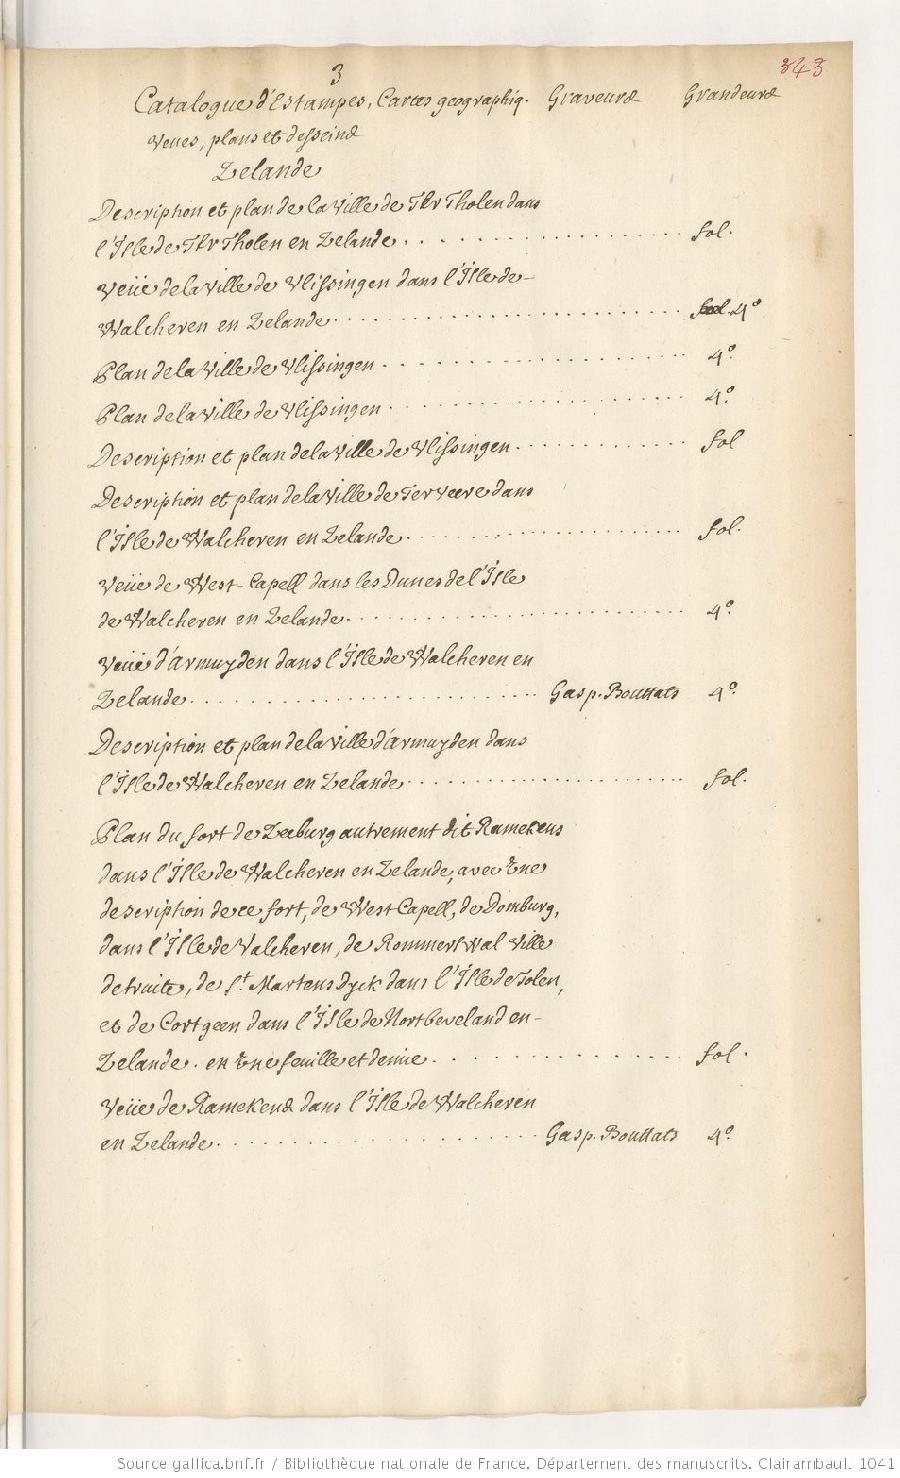 343
3
Catalogue d'Estampes, Cartes geographiq. Graveurs Grandeurs
Veues, plans et desseins
Zelande
Description et plan de la ville de Ter Tholen dans
l'Isle de Ter Tholen en Zelande . . . fol.
Veüe de la ville de Vlissingen dans l'Isle de
Walcheren en Zelande . . . 4°
Plan de la ville de Vlissingen . . . 4°.
Plan de la ville de Vlissingen . . . 4°.
Description et plan de la ville de Vlissingen . . . fol
Description et plan de la ville de Terveere dans
l'Isle de Walcheren en Zelande . . . fol.
Veüe de West-Capell dans les Dunes de l'Isle
de Walcheren en Zelande . . . 4°.
Veüe d'armuyden dans l'Isle de Walcheren en
Zelande . . . Gasp. Bouttats 4°.
Description et plan de la ville d'armuyden dans
l'Isle de Walcheren en Zelande . . . fol.
Plan du fort de Zeeburg autrement dit Ramekens
dans l'Isle de Walcheren en Zelande, avec une
description de ce fort, de West Capell, de Domburg,
dans l'Isle de Valcheren, de Rommerswal ville
detruite, de St. Martensdyck dans l'Isle de Tolen,
et de Cortgeen dans l'Isle de Nortbeveland en-
Zelande. en une feuille et demie . . . fol.
Veüe de Ramekens dans l'Isle de Walcheren
en Zelande . . . Gasp. Bouttats 4°.
Source gallica.bnf.fr / Bibliothèque nationale de France. Département des manuscrits. Clairambault 1041